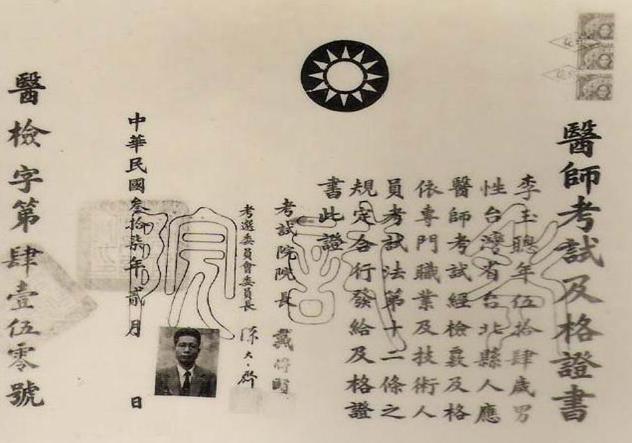 醫師考試及格證書
李玉聰年伍拾肆歲男
性台灣省台北縣人應
醫師考試經檢覈及格
依專門職業及技術人
員考試法第十二條之
規定合行發給及格證
書此證
考試院院長
考選委員會委員長
中華民國叁拾柒年貳月 日
醫檢字第肆壹伍零號